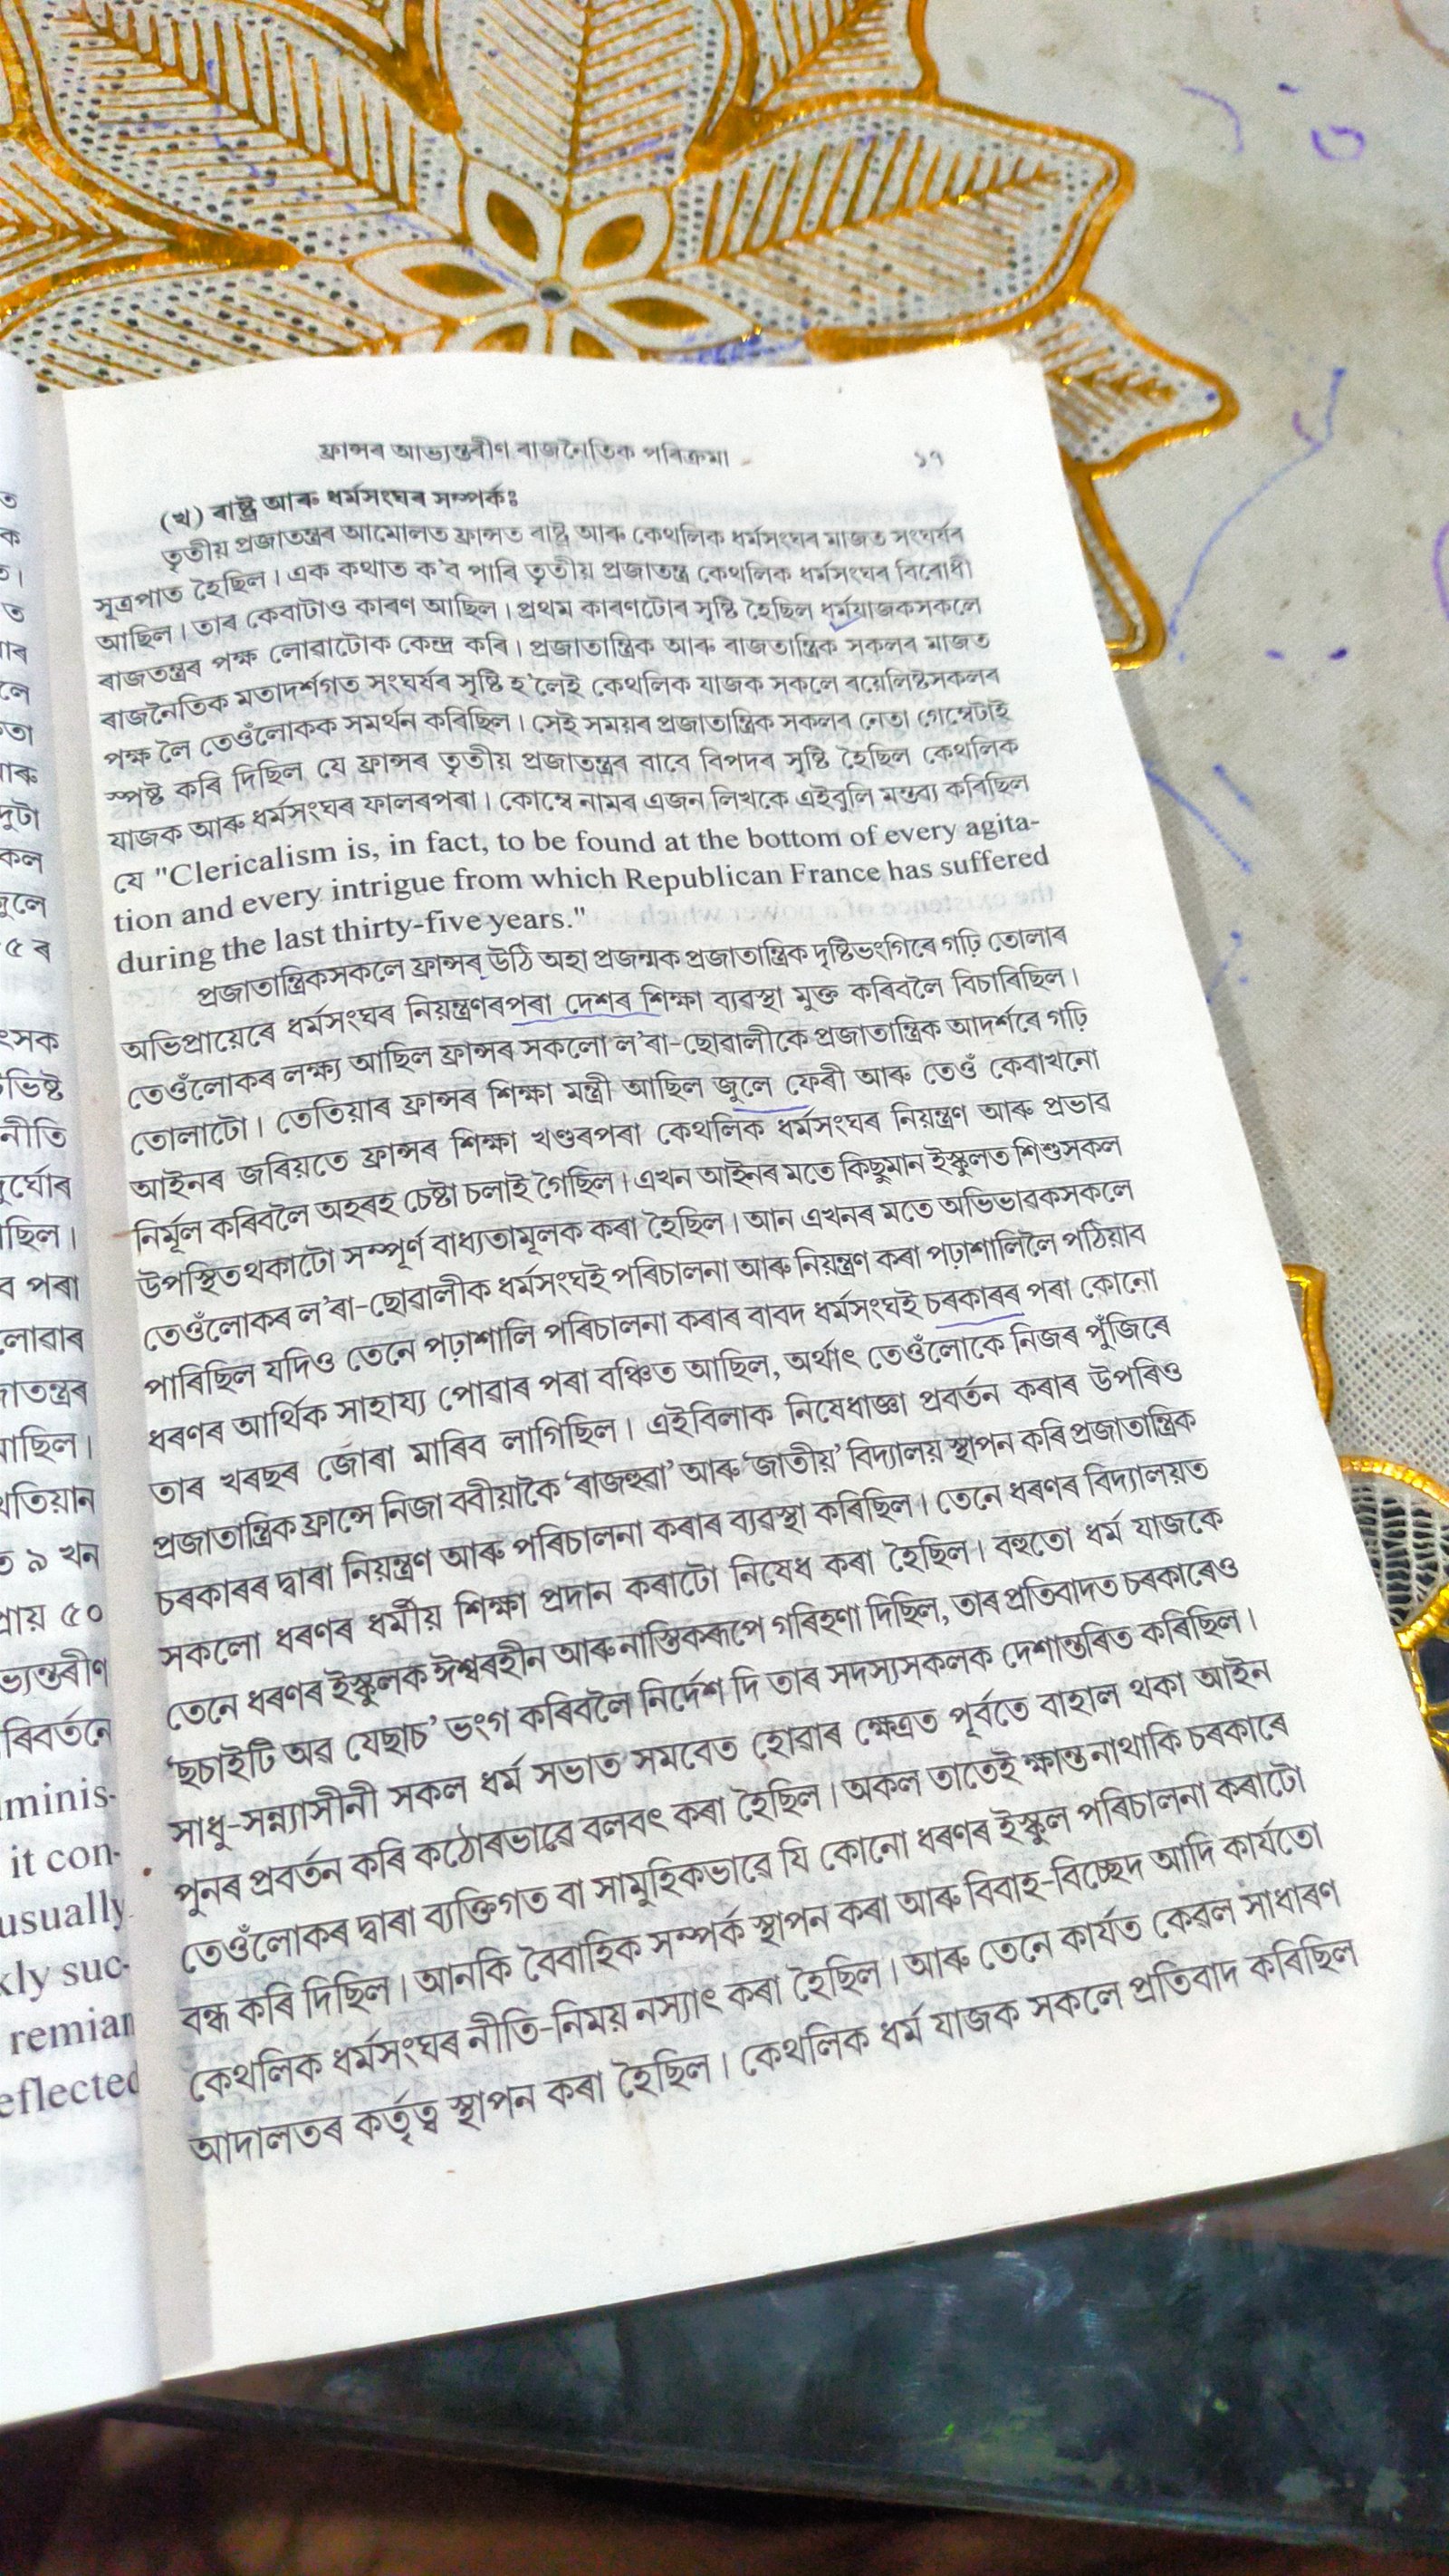 ফ্ৰান্সৰ আভ্যন্তৰীণ ৰাজনৈতিক পৰিক্ৰমা ১৭
(খ) ৰাষ্ট্ৰ আৰু ধৰ্মসংঘৰ সম্পৰ্কঃ
তৃতীয় প্ৰজাতন্ত্ৰৰ আমোলত ফ্ৰান্সত ৰাষ্ট্ৰ আৰু কেথলিক ধৰ্মসংঘৰ মাজত সংঘৰ্ষৰ
সূত্ৰপাত হৈছিল। এক কথাত ক'ব পাৰি তৃতীয় প্ৰজাতন্ত্ৰ কেথলিক ধৰ্মসংঘৰ বিৰোধী
আছিল। তাৰ কেবাটাও কাৰণ আছিল। প্ৰথম কাৰণটোৰ সৃষ্টি হৈছিল ধৰ্মযাজকসকলে
ৰাজতন্ত্ৰৰ পক্ষ লোৱাটোক কেন্দ্ৰ কৰি। প্ৰজাতান্ত্ৰিক আৰু ৰাজতান্ত্ৰিক সকলৰ মাজত
ৰাজনৈতিক মতাদৰ্শগত সংঘৰ্ষৰ সৃষ্টি হ'লেই কেথলিক যাজক সকলে ৰয়েলিষ্টসকলৰ
পক্ষ লৈ তেওঁলোকক সমৰ্থন কৰিছিল। সেই সময়ৰ প্ৰজাতান্ত্ৰিক সকলৰ নেতা গেম্বেটাই
স্পষ্ট কৰি দিছিল যে ফ্ৰান্সৰ তৃতীয় প্ৰজাতন্ত্ৰৰ বাবে বিপদৰ সৃষ্টি হৈছিল কেথলিক
যাজক আৰু ধৰ্মসংঘৰ ফালৰপৰা। কোম্বে নামৰ এজন লিখকে এইবুলি মন্তব্য কৰিছিল
যে "Clericalism is, in fact, to be found at the bottom of every agita-
tion and every intrigue from which Republican France has suffered
during the last thirty-five years."
প্ৰজাতান্ত্ৰিকসকলে ফ্ৰান্সৰ উঠি অহা প্ৰজন্মক প্ৰজাতান্ত্ৰিক দৃষ্টিভংগিৰে গঢ়ি তোলাৰ
অভিপ্ৰায়েৰে ধৰ্মসংঘৰ নিয়ন্ত্ৰণৰপৰা দেশৰ শিক্ষা ব্যৱস্থা মুক্ত কৰিবলৈ বিচাৰিছিল।
তেওঁলোকৰ লক্ষ্য আছিল ফ্ৰান্সৰ সকলো ল'ৰা-ছোৱালীকে প্ৰজাতান্ত্ৰিক আদৰ্শৰে গঢ়ি
তোলাটো। তেতিয়াৰ ফ্ৰান্সৰ শিক্ষা মন্ত্ৰী আছিল জুলে ফেৰী আৰু তেওঁ কেবাখনো
আইনৰ জৰিয়তে ফ্ৰান্সৰ শিক্ষা খণ্ডৰপৰা কেথলিক ধৰ্মসংঘৰ নিয়ন্ত্ৰণ আৰু প্ৰভাৱ
নিৰ্মূল কৰিবলৈ অহৰহ চেষ্টা চলাই গৈছিল। এখন আইনৰ মতে কিছুমান ইস্কুলত শিশুসকল
উপস্থিত থকাটো সম্পূৰ্ণ বাধ্যতামূলক কৰা হৈছিল। আন এখনৰ মতে অভিভাৱকসকলে
তেওঁলোকৰ ল'ৰা-ছোৱালীক ধৰ্মসংঘই পৰিচালনা আৰু নিয়ন্ত্ৰণ কৰা পঢ়াশালিলৈ পঠিয়াব
পাৰিছিল যদিও তেনে পঢ়াশালি পৰিচালনা কৰাৰ বাবদ ধৰ্মসংঘই চৰকাৰৰ পৰা কোনো
ধৰণৰ আৰ্থিক সাহায্য পোৱাৰ পৰা বঞ্চিত আছিল, অৰ্থাৎ তেওঁলোকে নিজৰ পুঁজিৰে
তাৰ খৰছৰ জোৰা মাৰিব লাগিছিল। এইবিলাক নিষেধাজ্ঞা প্ৰবৰ্তন কৰাৰ উপৰিও
প্ৰজাতান্ত্ৰিক ফ্ৰান্সে নিজা ববীয়াকৈ 'ৰাজহুৱা' আৰু 'জাতীয়' বিদ্যালয় স্থাপন কৰি প্ৰজাতান্ত্ৰিক
চৰকাৰৰ দ্বাৰা নিয়ন্ত্ৰণ আৰু পৰিচালনা কৰাৰ ব্যৱস্থা কৰিছিল। তেনে ধৰণৰ বিদ্যালয়ত
সকলো ধৰণৰ ধৰ্মীয় শিক্ষা প্ৰদান কৰাটো নিষেধ কৰা হৈছিল। বহুতো ধৰ্ম যাজকে
তেনে ধৰণৰ ইস্কুলক ঈশ্বৰহীন আৰু নাস্তিকৰূপে গৰিহণা দিছিল, তাৰ প্ৰতিবাদত চৰকাৰেও
'ছচাইটি অৱ যেছাচ' ভংগ কৰিবলৈ নিৰ্দেশ দি তাৰ সদস্যসকলক দেশান্তৰিত কৰিছিল।
সাধু-সন্ন্যাসীনী সকল ধৰ্ম সভাত সমবেত হোৱাৰ ক্ষেত্ৰত পূৰ্বতে বাহাল থকা আইন
পুনৰ প্ৰবৰ্তন কৰি কঠোৰভাৱে বলবৎ কৰা হৈছিল। অকল তাতেই ক্ষান্ত নাথাকি চৰকাৰে
তেওঁলোকৰ দ্বাৰা ব্যক্তিগত বা সামুহিকভাৱে যি কোনো ধৰণৰ ইস্কুল পৰিচালনা কৰাটো
বন্ধ কৰি দিছিল। আনকি বৈবাহিক সম্পৰ্ক স্থাপন কৰা আৰু বিবাহ-বিচ্ছেদ আদি কাৰ্যতো
কেথলিক ধৰ্মসংঘৰ নীতি-নিময় নস্যাৎ কৰা হৈছিল। আৰু তেনে কাৰ্যত কেৱল সাধাৰণ
আদালতৰ কৰ্তৃত্ব স্থাপন কৰা হৈছিল। কেথলিক ধৰ্ম যাজক সকলে প্ৰতিবাদ কৰিছিল